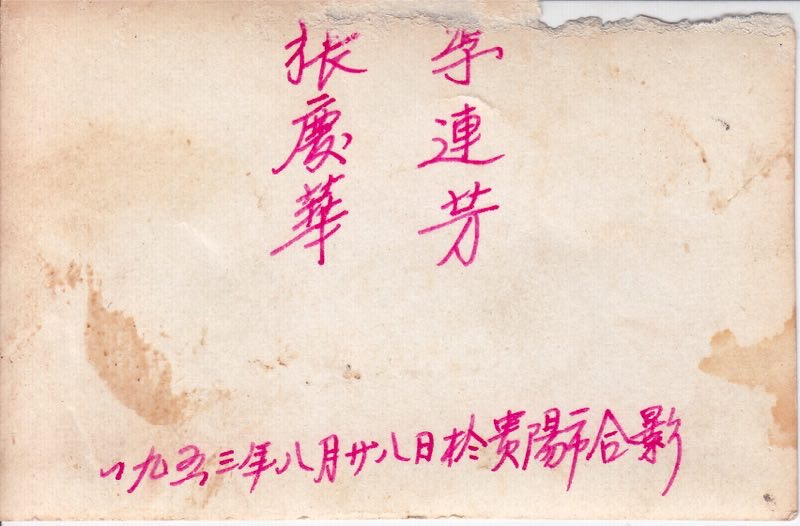 李連芳
張慶華
一九五三年八月廿八日於貴陽市合影